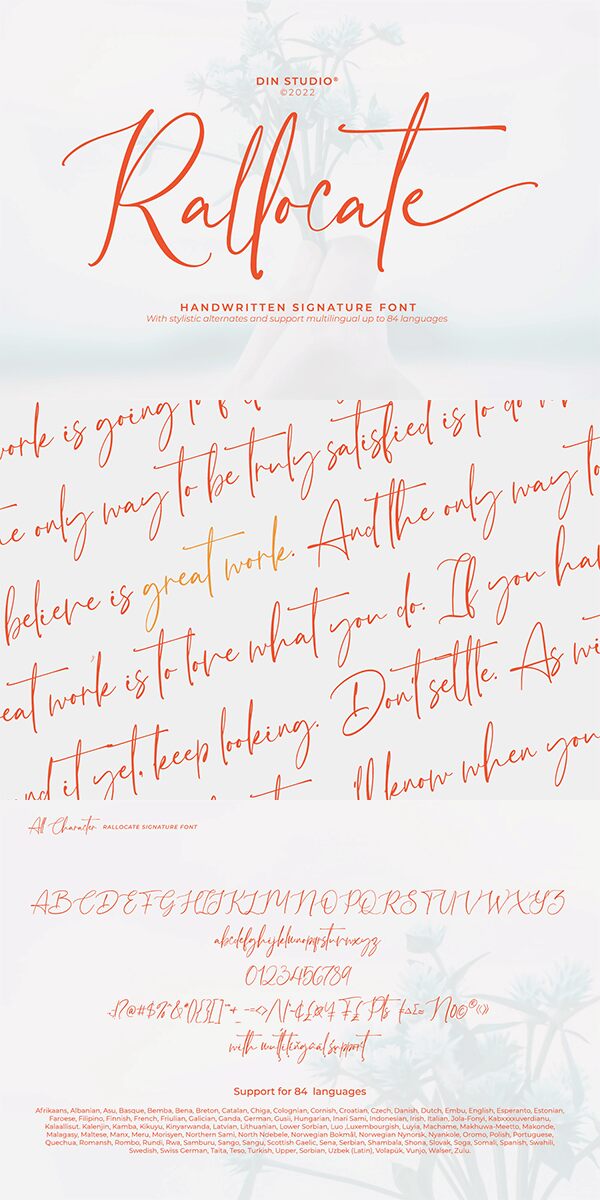 DIN STUDIO®
©2022
Rallocate
HANDWRITTEN SIGNATURE FONT
With stylistic alternates and support multilingual up to 84 languages
work is going to
the only way to be truly satisfied is to do
believe is great work. And the only way to
great work is to love what you do. If you
it yet, keep looking. Don't settle. As
'll know when you
All Character RALLOCATE SIGNATURE FONT
ABCDEFGHIJKLMNOPQRSTUVWXYZ
abcdefghijklmnopqrstuvwxyz
0123456789
with multilingual support
Support for 84 languages
Afrikaans, Albanian, Asu, Basque, Bemba, Bena, Breton, Catalan, Chiga, Colognian, Cornish, Croatian, Czech, Danish, Dutch, Embu, English, Esperanto, Estonian,
Faroese, Filipino, Finnish, French, Friulian, Galician, Ganda, German, Gusii, Hungarian, Inari Sami, Indonesian, Irish, Italian, Jola-Fonyi, Kabxxxuverdianu,
Kalaallisut, Kalenjin, Kamba, Kikuyu, Kinyarwanda, Latvian, Lithuanian, Lower Sorbian, Luo ,Luxembourgish, Luyia, Machame, Makhuwa-Meetto, Makonde,
Malagasy, Maltese, Manx, Meru, Morisyen, Northern Sami, North Ndebele, Norwegian Bokmål, Norwegian Nynorsk, Nyankole, Oromo, Polish, Portuguese,
Quechua, Romansh, Rombo, Rundi, Rwa, Samburu, Sango, Sangu, Scottish Gaelic, Sena, Serbian, Shambala, Shona, Slovak, Soga, Somali, Spanish, Swahili,
Swedish, Swiss German, Taita, Teso, Turkish, Upper, Sorbian, Uzbek (Latin), Volapük, Vunjo, Walser, Zulu.